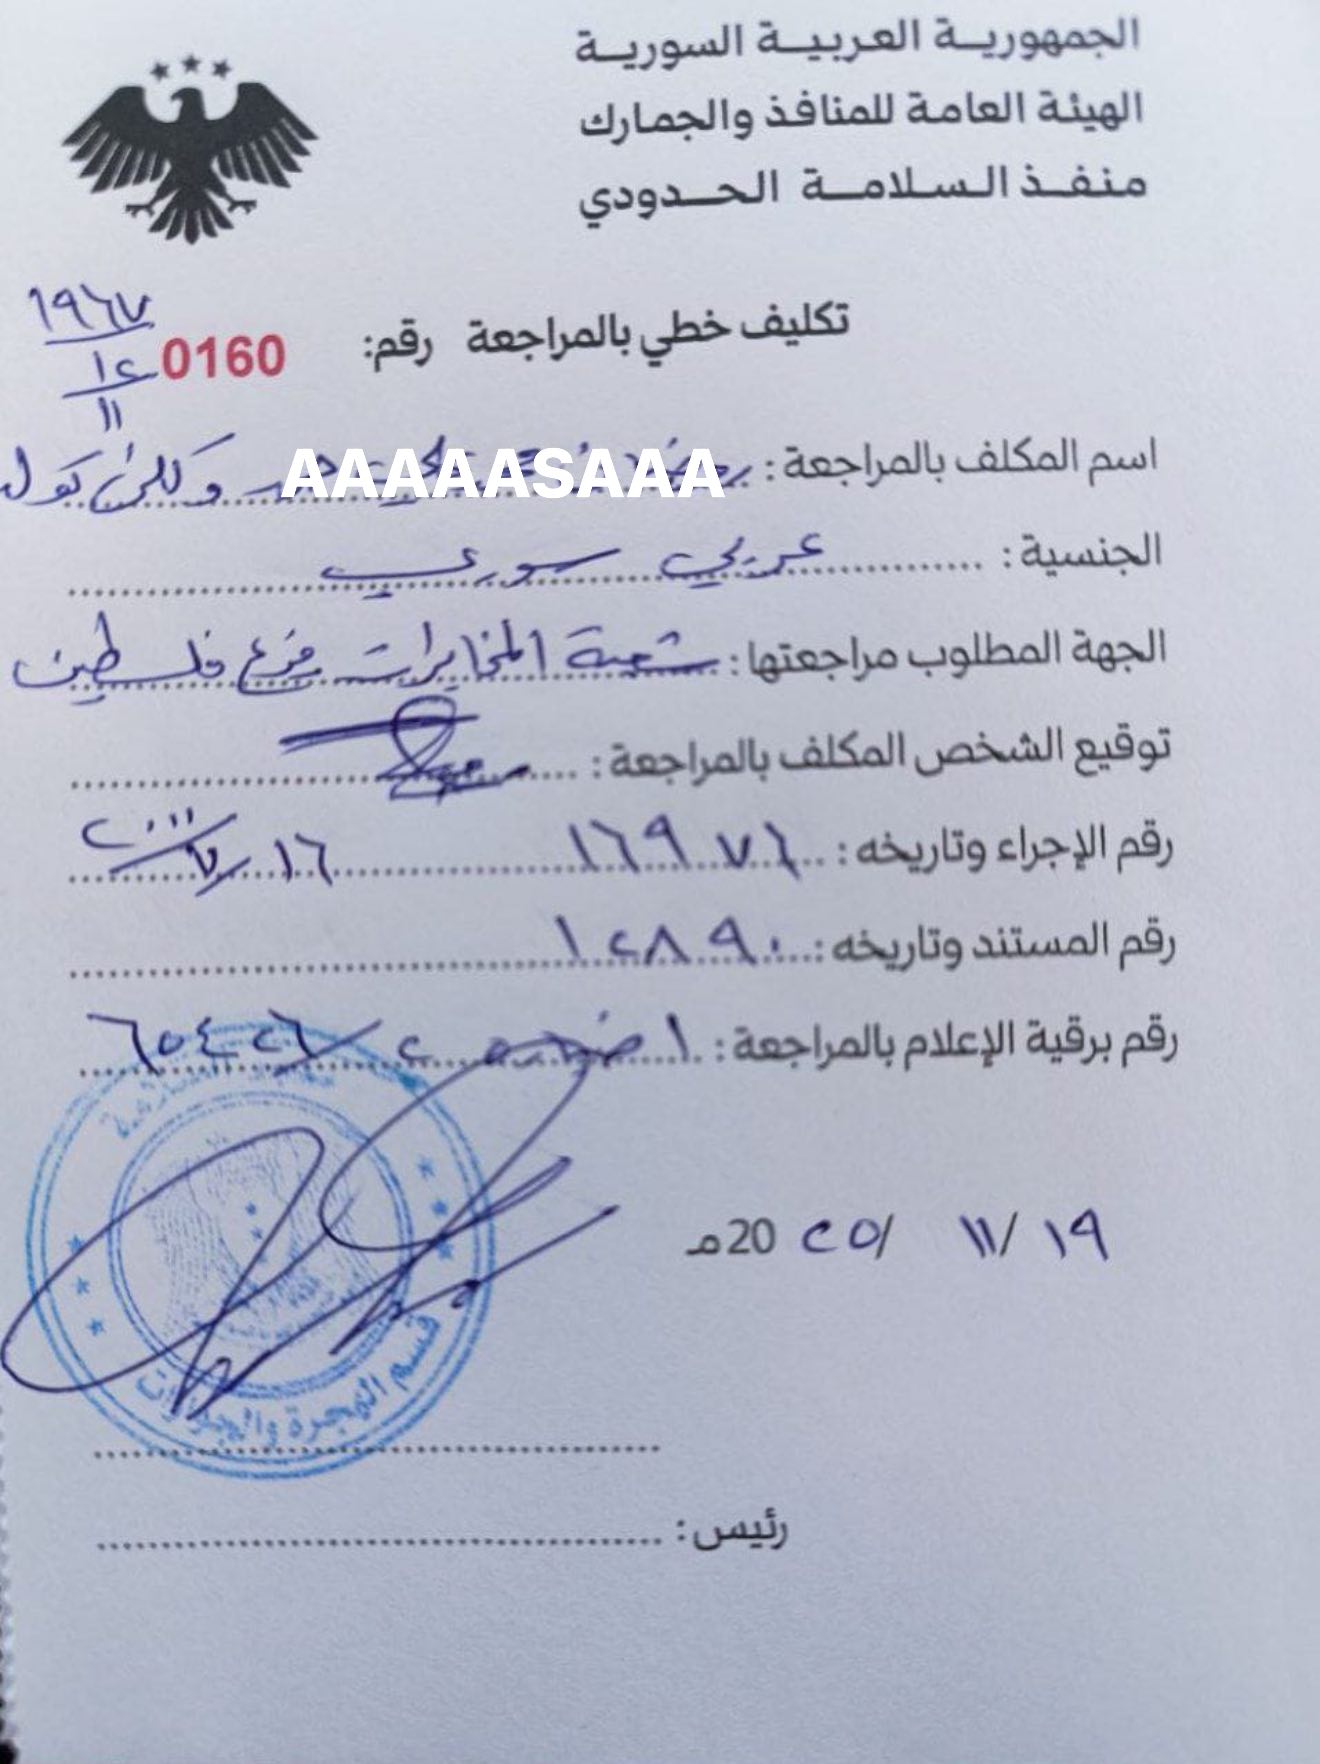 الجمهورية العربية السورية
الهيئة العامة للمنافذ والجمارك
منفذ السلامة الحدودي
تكليف خطي بالمراجعة رقم: 0160
١٩٦٧
١٢
١١
اسم المكلف بالمراجعة: AAAAASAAA
الجنسية: عربي سوري
الجهة المطلوب مراجعتها: شعبة المخابرات فرع فلسطين
توقيع الشخص المكلف بالمراجعة:
رقم الإجراء وتاريخه: ١٦٩٧٦ ١٦/٧/٢٠١١
رقم المستند وتاريخه: ١٢٨٩٠
رقم برقية الإعلام بالمراجعة:
١٩/ ١١/ ٢٥ 20م
قسم الهجرة والجوازات
رئيس: